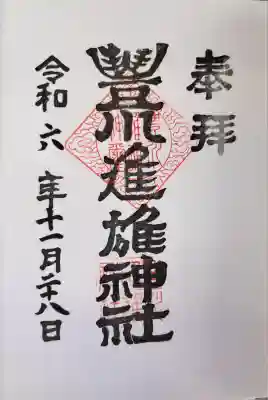 奉拝
豊川進雄神社
令和六年十一月二十八日